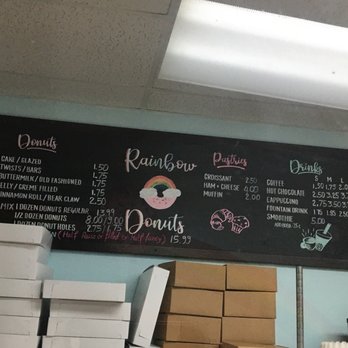 Donuts
CAKE / GLAZED
TWISTS / BARS 1.50
BUTTERMILK / OLD FASHIONED 1.75
JELLY / CREME FILLED 1.75
CINNAMON ROLL / BEAR CLAW 2.50
MIX 1 DOZEN DONUTS REGULAR 13.99
1/2 DOZEN DONUTS 8.00/9.00
1 DOZEN DONUT HOLES 2.75/
15.99
Rainbow
Donuts
Pastries
CROISSANT 2.50
HAM + CHEESE 4.00
MUFFIN 2.00
Drinks
S M L
COFFEE
HOT CHOCOLATE 2.50
CAPPUCCINO 2.75
FOUNTAIN DRINK 1.75 1.85
SMOOTHIE 5.00
ADD BOBA